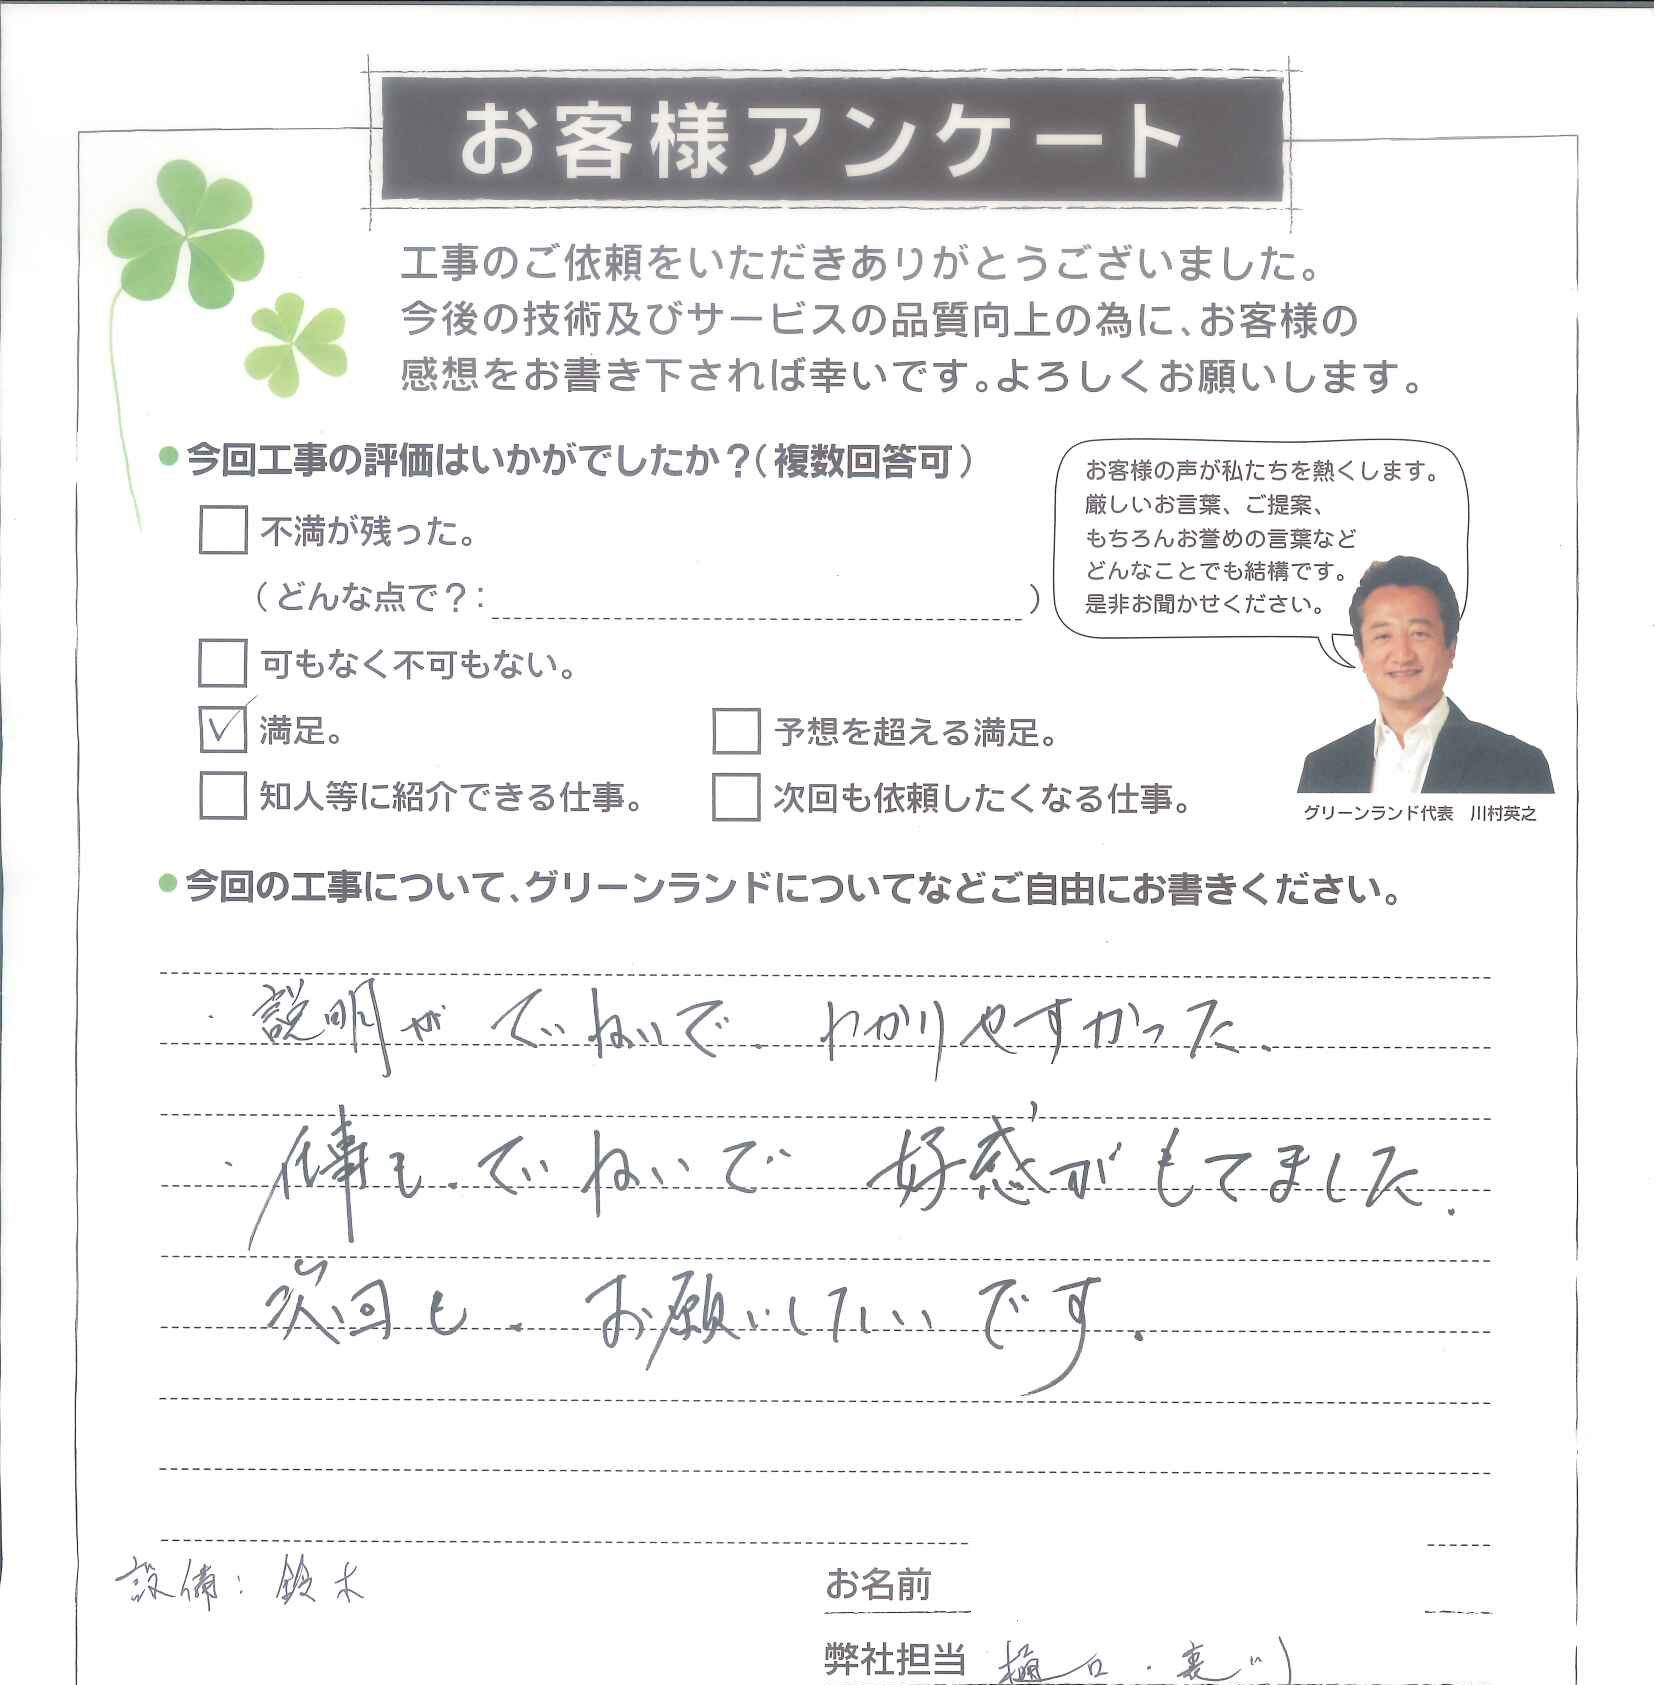 お客様アンケート
工事のご依頼をいただきありがとうございました。
今後の技術及びサービスの品質向上の為に、お客様の
感想をお書き下されば幸いです。よろしくお願いします。
今回工事の評価はいかがでしたか？(複数回答可)
お客様の声が私たちを熱くします。
厳しいお言葉、ご提案、
もちろんお誉めの言葉など
どんなことでも結構です。
是非お聞かせください。
不満が残った。
(どんな点で？: )
可もなく不可もない。
満足。 予想を超える満足。
知人等に紹介できる仕事。 次回も依頼したくなる仕事。
グリーンランド代表 川村英之
今回の工事について、グリーンランドについてなどご自由にお書きください。
・説明がていねいで、わかりやすかった。
・仕事も、ていねいで 好感がもてました。
次回も、お願いしたいです。
設備：鈴木
お名前
弊社担当 樋口・